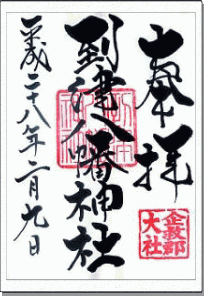 奉拝
企救郡
大社
到津八幡神社
平成二十八年二月九日